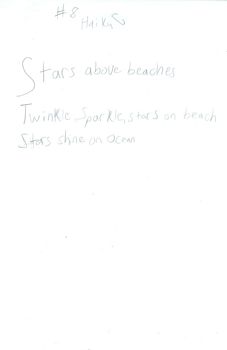 #8
Haikus
Stars above beaches
Twinkle, Sparkle, stars on beach
Stars shine on ocean